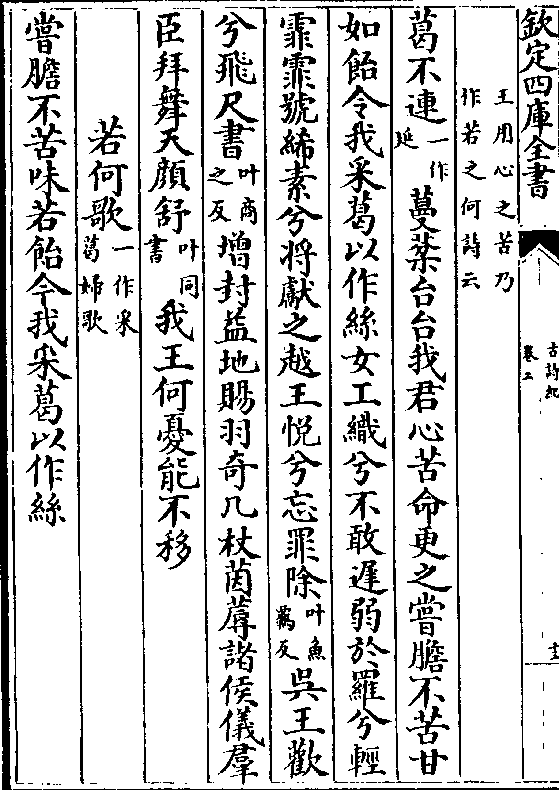 欽定四庫全書
古詩紀
卷二
王用心之苦乃
作若之何詩云
葛不連一作延蔓棻台台我君心苦命更之嘗膽不苦甘
如飴令我采葛以作絲女工織兮不敢遲弱於羅兮輕
霏霏號絺素兮將獻之越王悅兮忘罪除叶魚羈反吳王歡
兮飛尺書叶商之反增封益地賜羽奇几杖茵蓐諸侯儀羣
臣拜舞天顏舒叶同書我王何憂能不移
若何歌一作采葛婦歌
嘗膽不苦味若飴令我采葛以作絲